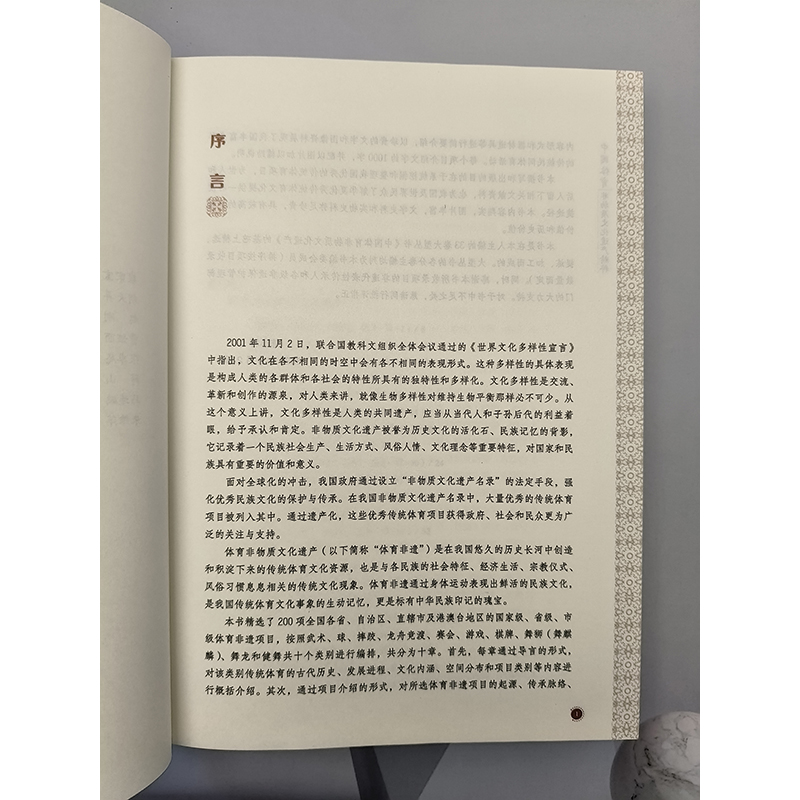 序
言
2001年11月2日，联合国教科文组织全体会议通过的《世界文化多样性宣言》
中指出，文化在各不相同的时空中会有各不相同的表现形式。这种多样性的具体表现
是构成人类的各群体和各社会的特性所具有的独特性和多样化。文化多样性是交流、
革新和创作的源泉，对人类来讲，就像生物多样性对维持生物平衡那样必不可少。从
这个意义上讲，文化多样性是人类的共同遗产，应当从当代人和子孙后代的利益着
眼，给予承认和肯定。非物质文化遗产被誉为历史文化的活化石、民族记忆的背影，
它记录着一个民族社会生产、生活方式、风俗人情、文化理念等重要特征，对国家和民
族具有重要的价值和意义。
面对全球化的冲击，我国政府通过设立“非物质文化遗产名录”的法定手段，强
化优秀民族文化的保护与传承。在我国非物质文化遗产名录中，大量优秀的传统体育
项目被列入其中。通过遗产化，这些优秀传统体育项目获得政府、社会和民众更为广
泛的关注与支持。
体育非物质文化遗产（以下简称“体育非遗”）是在我国悠久的历史长河中创造
和积淀下来的传统体育文化资源，也是与各民族的社会特征、经济生活、宗教仪式、
风俗习惯息息相关的传统文化现象。体育非遗通过身体运动表现出鲜活的民族文化，
是我国传统体育文化事象的生动记忆，更是标有中华民族印记的瑰宝。
本书精选了200项全国各省、自治区、直辖市及港澳台地区的国家级、省级、市
级体育非遗项目，按照武术、球、摔跤、龙舟竞渡、赛会、游戏、棋牌、舞狮（舞麒
麟）、舞龙和健舞共十个类别进行编排，共分为十章。首先，每章通过导言的形式，
对该类别传统体育的古代历史、发展进程、文化内涵、空间分布和项目类别等内容进
行概括介绍。其次，通过项目介绍的形式，对所选体育非遗项目的起源、传承脉络、
1